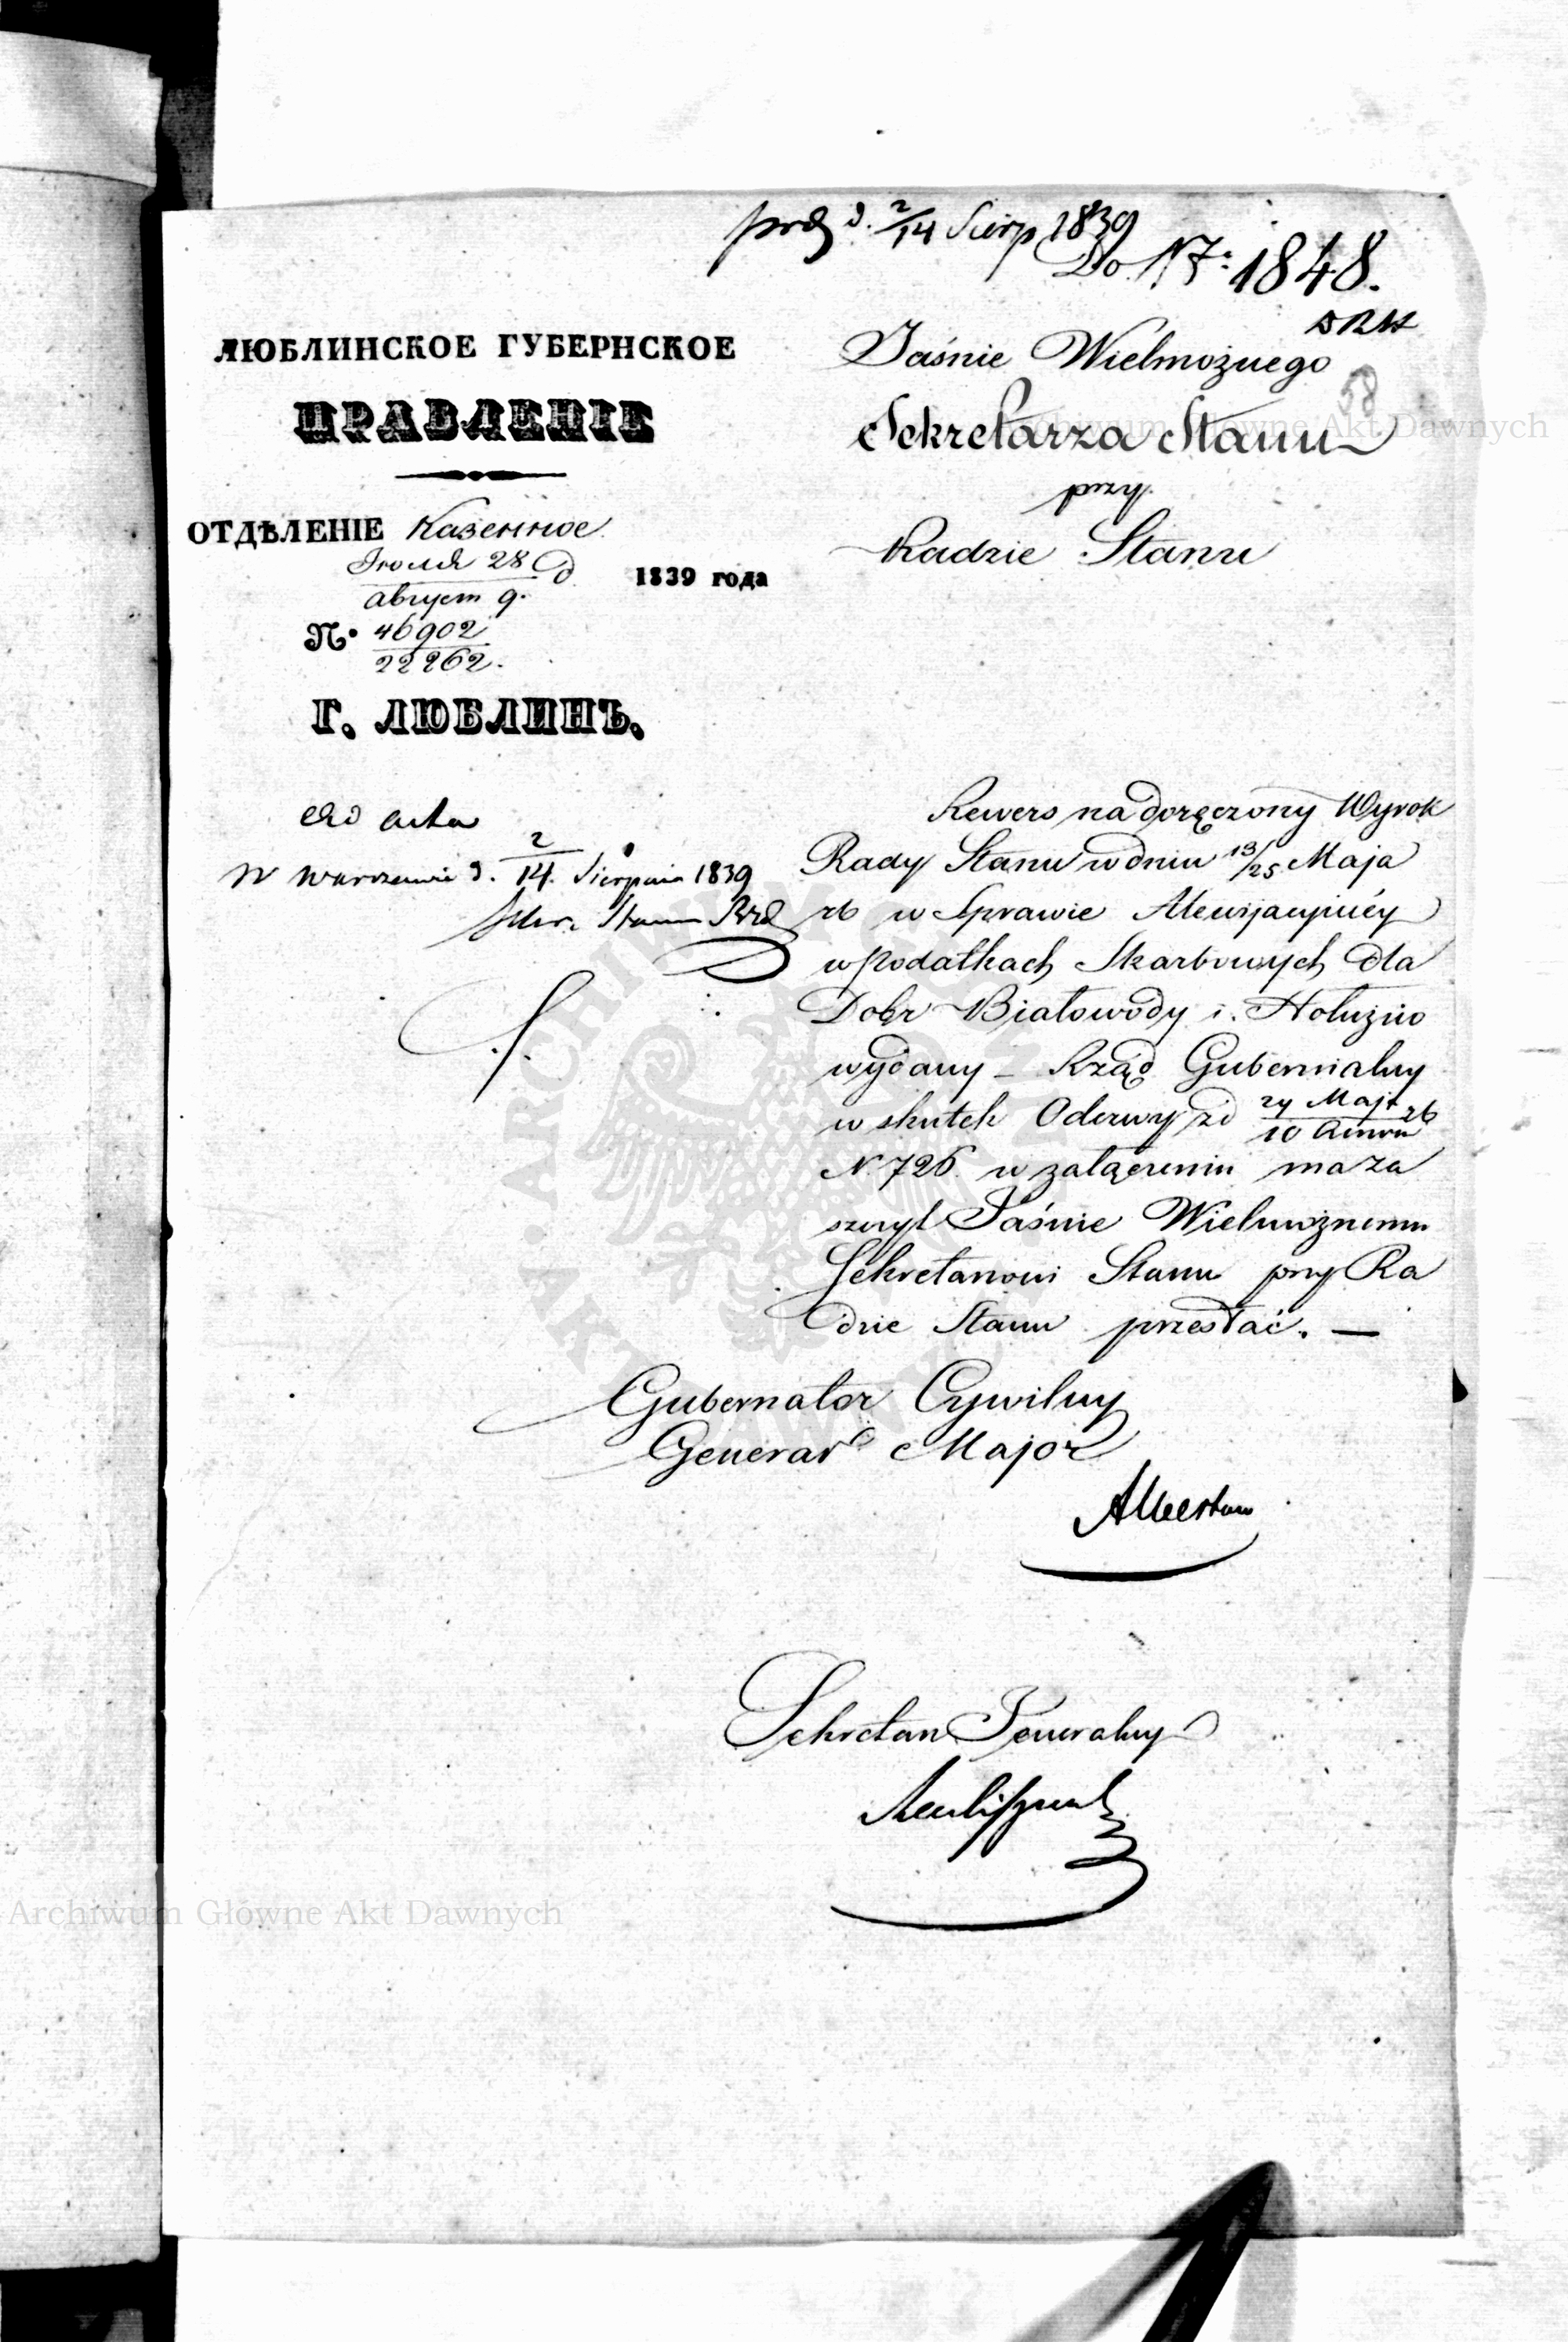 prd d. 2/14 Sierp 1839
Do Nº 1848.
58
ЛЮБЛИНСКОЕ ГУБЕРНСКОЕ
ПРАВЛЕНІЕ
ОТДѢЛЕНІЕ Казенное
Іюля 28
август 9.
1839 года
№ 46902
22262.
Г. ЛЮБЛИНЪ.
Jaśnie Wielmożnego
Sekretarza Stanu
przy
Radzie Stanu
Ad acta
w Warszawie d. 2/14. Sierpnia 1839
Sekr. Stanu
Rewers na doręczony Wyrok
Rady Stanu w dniu 13/25 Maja
rb w Sprawie Alewijacyjnéy
w Podatkach Skarbowych dla
Dobr Białowody i Hołużno
wydany – Rząd Gubernialny
w skutek Odezwy zd 29 Maja rb
10 Czerwca
N. 726. w załączeniu ma za
szczyt Jaśnie Wielmożnemu
Sekretarzowi Stanu przy Ra
dzie Stanu przesłać. —
Gubernator Cywilny
Generał Major
Albertow
Sekretarz Generalny
Archiwum Główne Akt Dawnych
Archiwum Główne Akt Dawnych